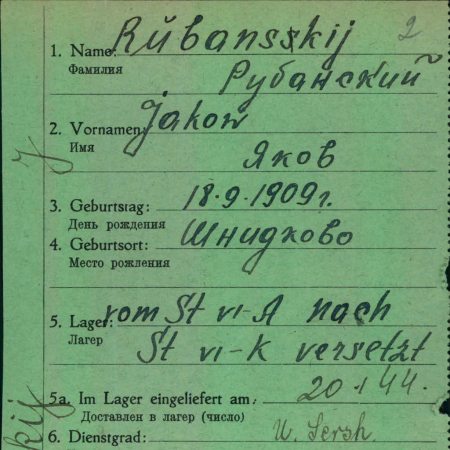 2
1. Name: Rŭbansskij
Фамилия
Рубанский
2. Vornamen: Jakow
Имя
Яков
3. Geburtstag: 18.9.1909г.
День рождения
4. Geburtsort: Шнидково
Место рождения
5. Lager: vom St VI-A nach
Лагер
St VI-K versetzt
5a. Im Lager eingeliefert am: 20.1.44.
Доставлен в лагер (число)
6. Dienstgrad: U. Sersh.